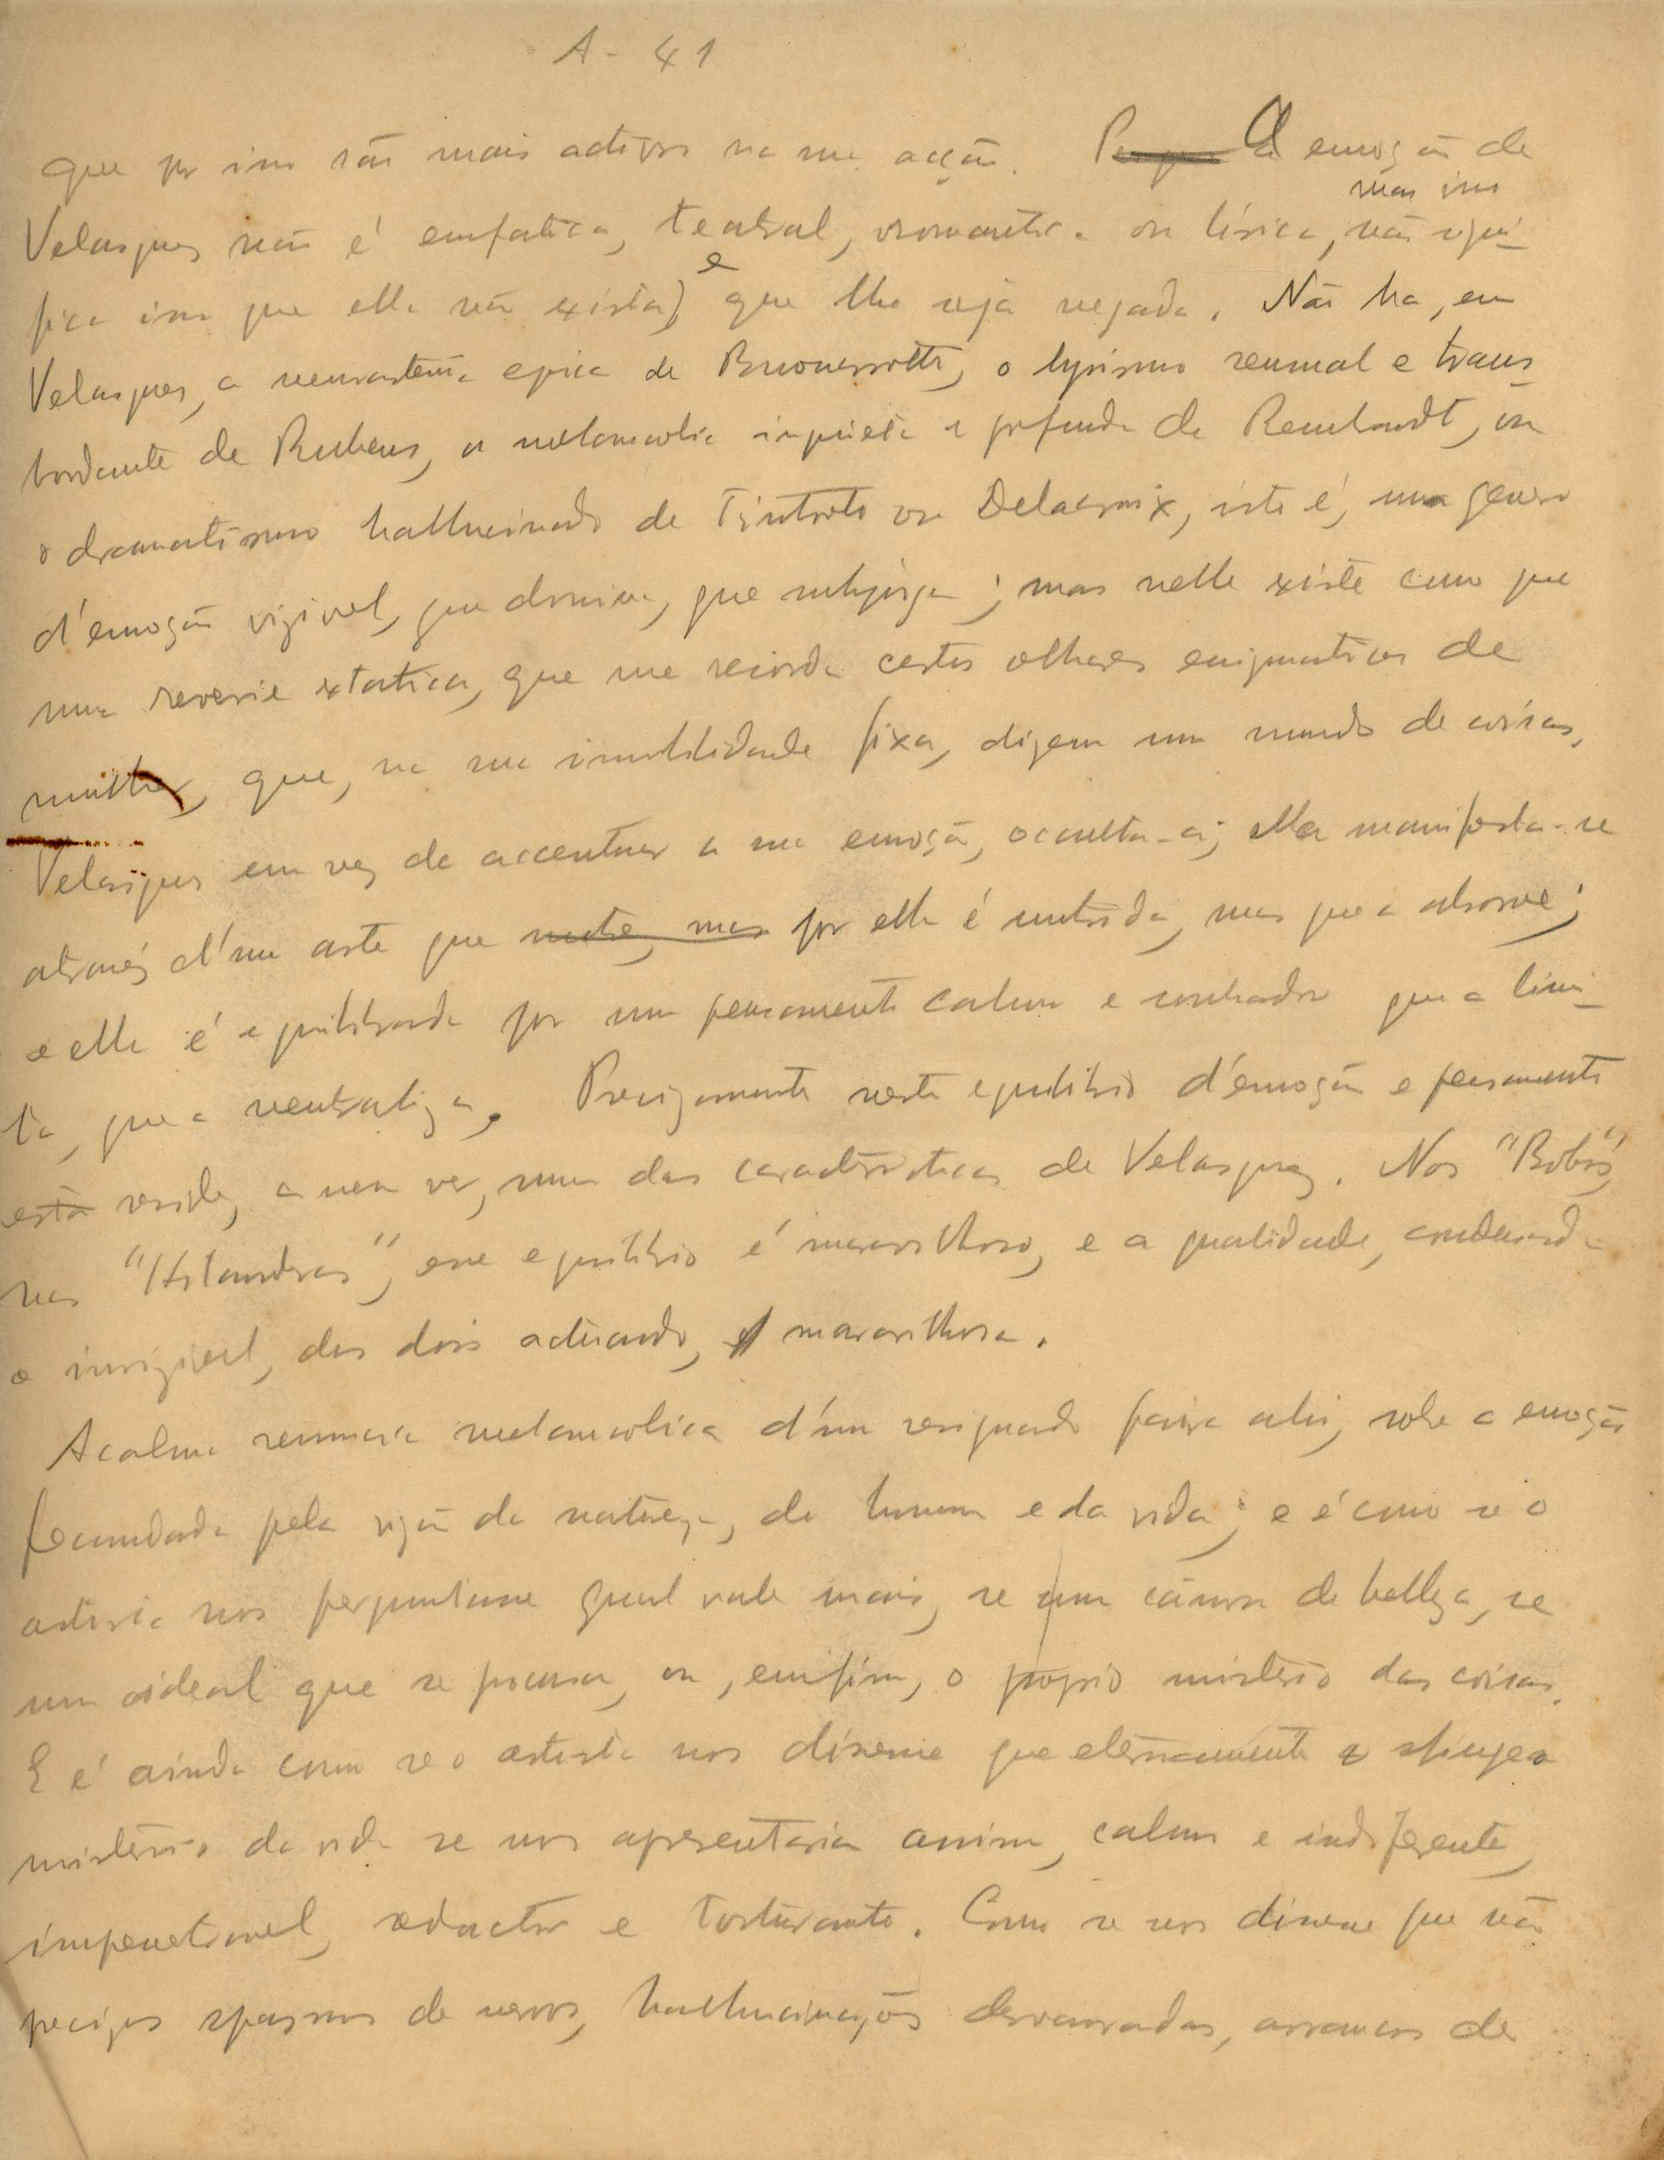 A - 41
que por isso são mais activos na sua acção. Porque A emoção de
mas isso
Velasquez não é emfatica, teatral, romantica ou lírica, não signi-
fica isso que ella não exista, e que lhe seja negada. Não ha, em
Velasques, a neurastenia epica de Buonarrotti, o lyrismo sensual e trans-
bordante de Rubens, a melancolia inquieta e profunda de Rembrandt, ou
o dramatismo hallucinado de Tintoreto ou Delacroix, isto é, um genero
d'emoção vizivel, que domina, que subjuga; mas nelle existe como que
uma reverie extatica, que me recorda certos olhares enigmaticos de
mulher, que, na sua imobilidade fixa, dizem um mundo de coisas,
Velasques em vez de accentuar a sua emoção, occulta-a; ella manifesta-se
através d'uma arte que nutre, mas por ella é nutrida, mas que a absorve;
e ella é equilibrada por um pensamento calmo e sonhador que a limi-
ta, que a neutraliza. Precizamente neste equilibrio d'emoção e pensamento
está reside, a meu ver, uma das caracteristicas de Velasquez. Nos "Bobos",
nas "Hilanderas", esse equilibrio é maravilhoso, e a qualidade, condensada
e invizivel, das dois actuando, maravilhosa.
A calma renuncia melancolica d'um resignado paira ahi, sobre a emoção
fecundada pela vizão da natureza, do homem e da vida; e é como se o
artista nos perguntasse qual vale mais, se uma cousa de belleza, se
um ideal que se procura, ou, emfim, o proprio misterio das coisas.
E é ainda como se o artista nos dissesse que eternamente a esfinge o
misterio da vida se nos apresentaria assim, calmo e indiferente,
impenetravel, seductor e torturante. Como se nos dissesse que não
precizos espasmos de nervos, hallucinações desvairadas, arrancos de